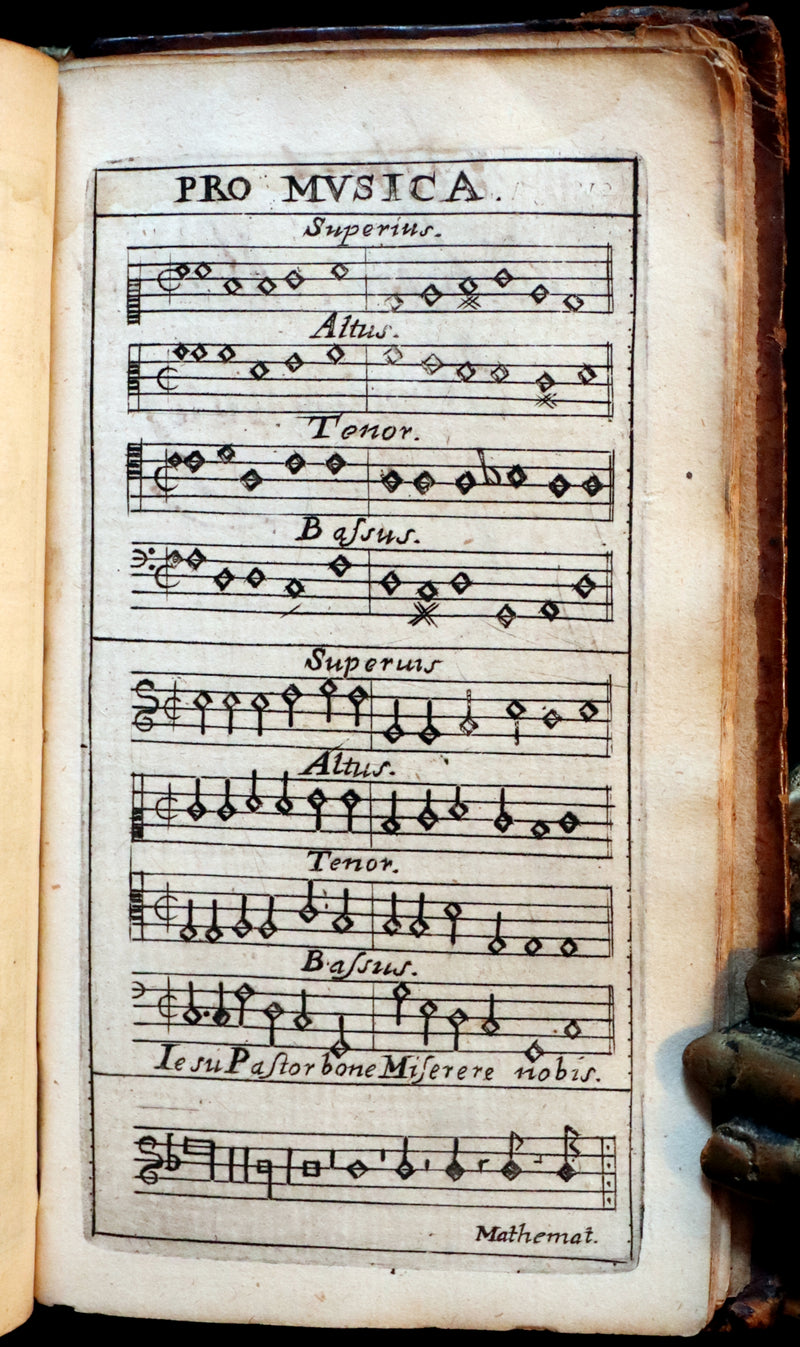 PRO MVSICA.
Superius.
Altus.
Tenor.
Baſsus.
Superius
Altus.
Tenor.
Baſsus.
Iesu Paſtor bone Miſerere nobis.
Mathemat.